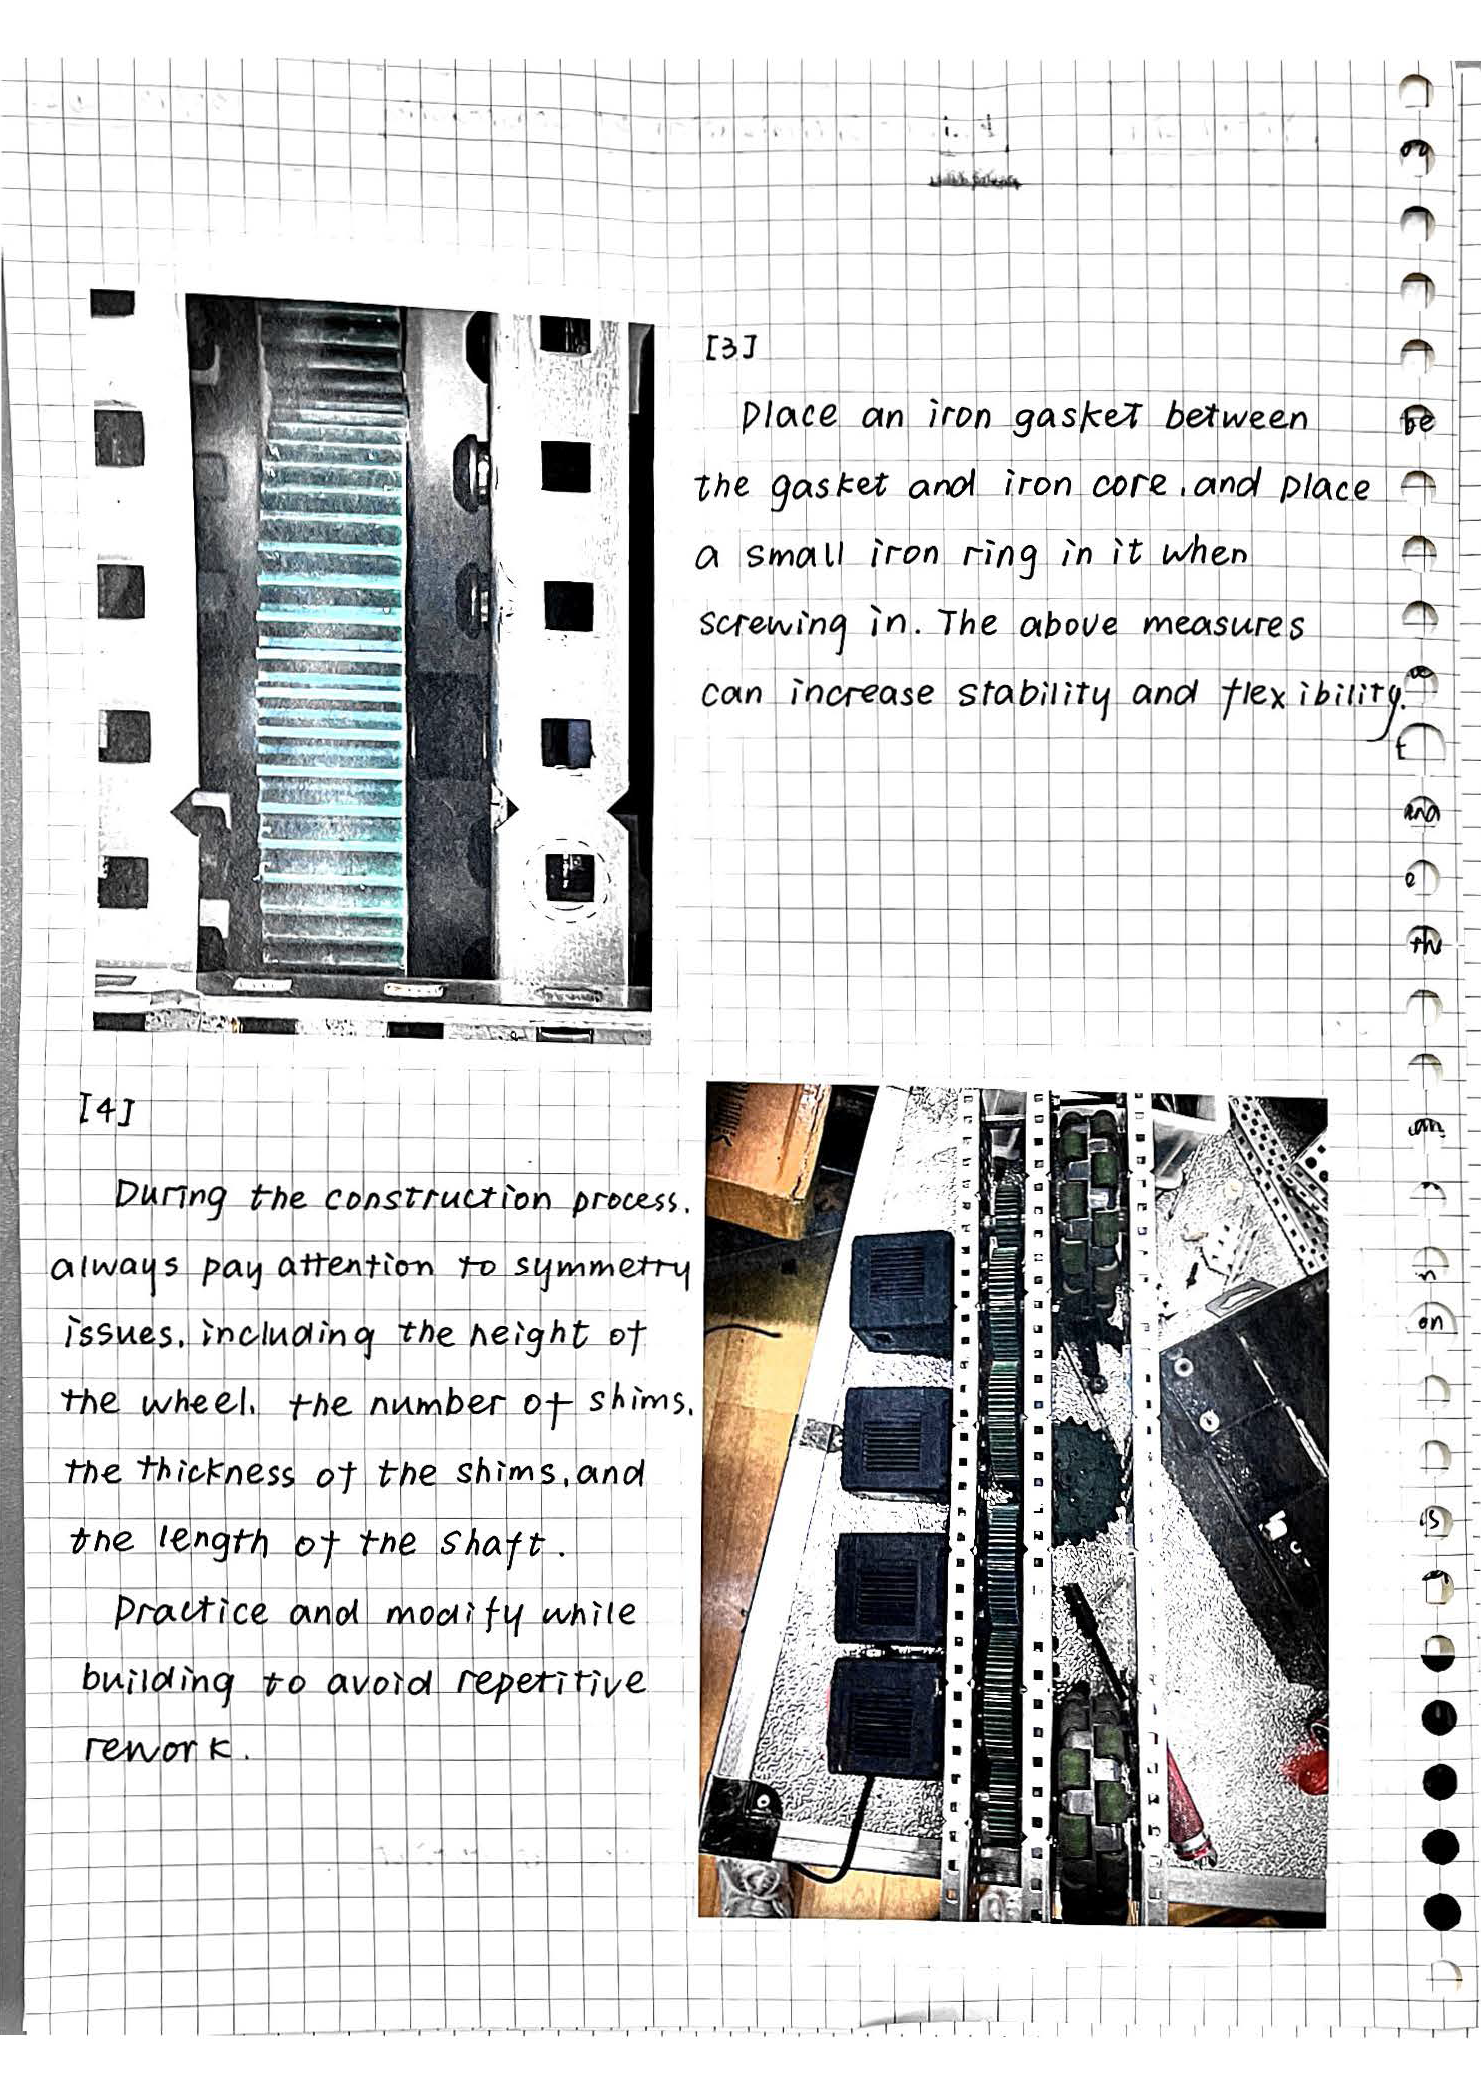 [3]
Place an iron gasket between
the gasket and iron core, and place
a small iron ring in it when
screwing in. The above measures
can increase stability and flexibility.
[4]
During the construction process,
always pay attention to symmetry
issues, including the height of
the wheel, the number of shims,
the thickness of the shims, and
the length of the shaft.
Practice and modify while
building to avoid repetitive
rework.
be
and
th
on